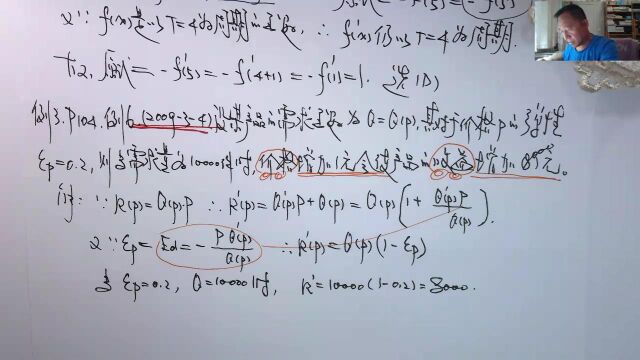 原式 = -f'(5) = -f'(5)
又∵ f(x)是以T=4为周期的函数, ∴ f'(x)仍以T=4为周期.
故, 原式 = -f'(5) = -f'(4+1) = -f'(1) = 1. 选(D)
例3. P104. 例6 (2009-3-4) 设某产品的需求函数为 Q=Q(p), 其对于价格p的弹性
εp=0.2, 则当需求量为10000件时, 价格增加1元会使产品的收益增加 8000元。
解: ∵ R(p)=Q(p)·P ∴ R'(p)=Q'(p)P+Q(p)=Q(p)(1+ Q'(p)P / Q(p)).
又∵ εp = Ed = - P Q'(p) / Q(p) ∴ R'(p)=Q(p)(1-εp)
当 εp=0.2, Q=10000时, R'=10000(1-0.2)=8000.